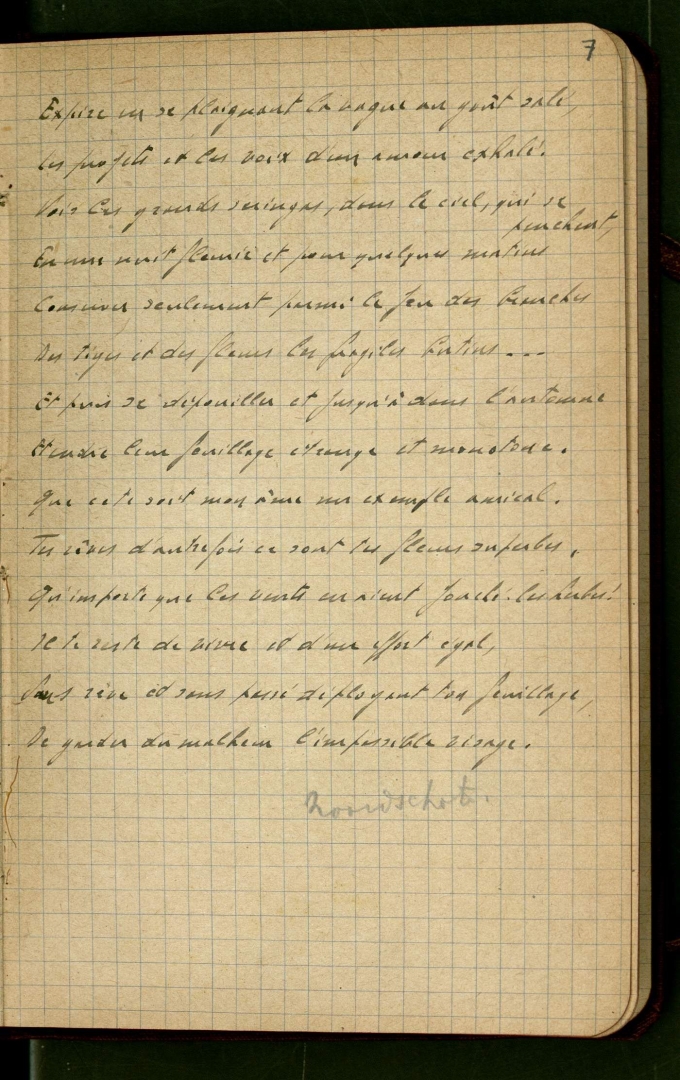 7
Expire en se plaignant la vague au goût salé,
Les projets et les voix d'un amour exhalé.
Vois les grands seringas, dans le ciel, qui se
penchent,
En une nuit fleurie et pour quelques matins
Conserver seulement parmi le feu des branches
Des tiges et des fleurs les fragiles butins ...
Et puis se dépouiller et jusqu'à dans l'automne
Etendre leur feuillage étrange et monotone.
Que cela soit mon âme un exemple amical.
Tes rêves d'autrefois ce sont tes fleurs superbes,
Qu'importe que les vents en aient jonché les herbes!
Il te reste de vivre et d'un effort égal,
Sans rêve et sans passé déployant ton feuillage,
De garder du malheur l'impassible visage.
Noordschote.